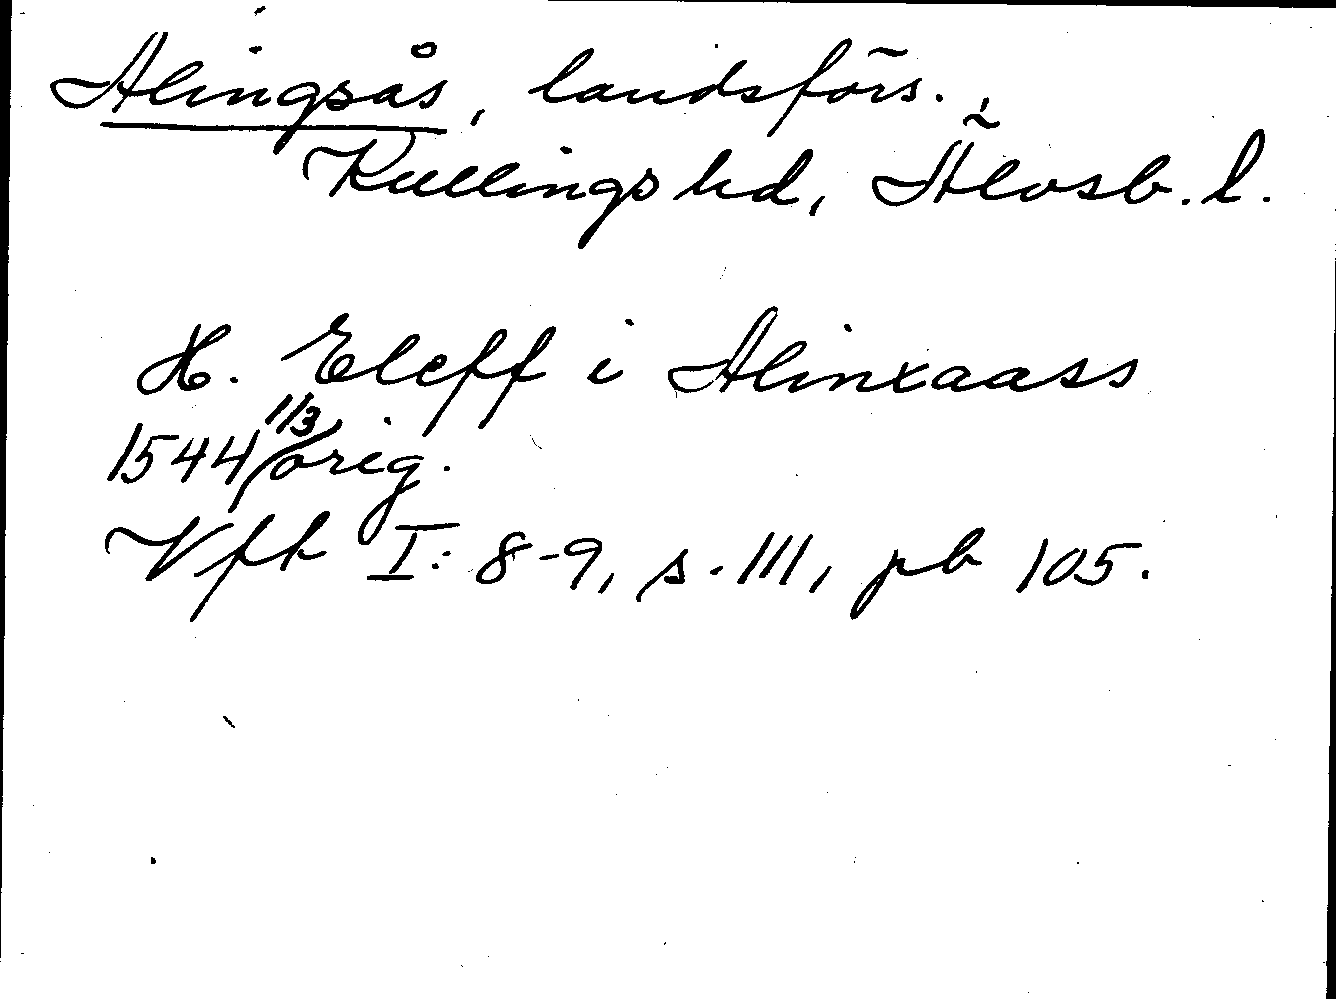 Alingsås, landsförs.,
Kullings hd, Älvsb. l.
H. Eleff i Alinxaass
1544 1/3 orig.
Vfk I: 8-9, s. 111, pb 105.